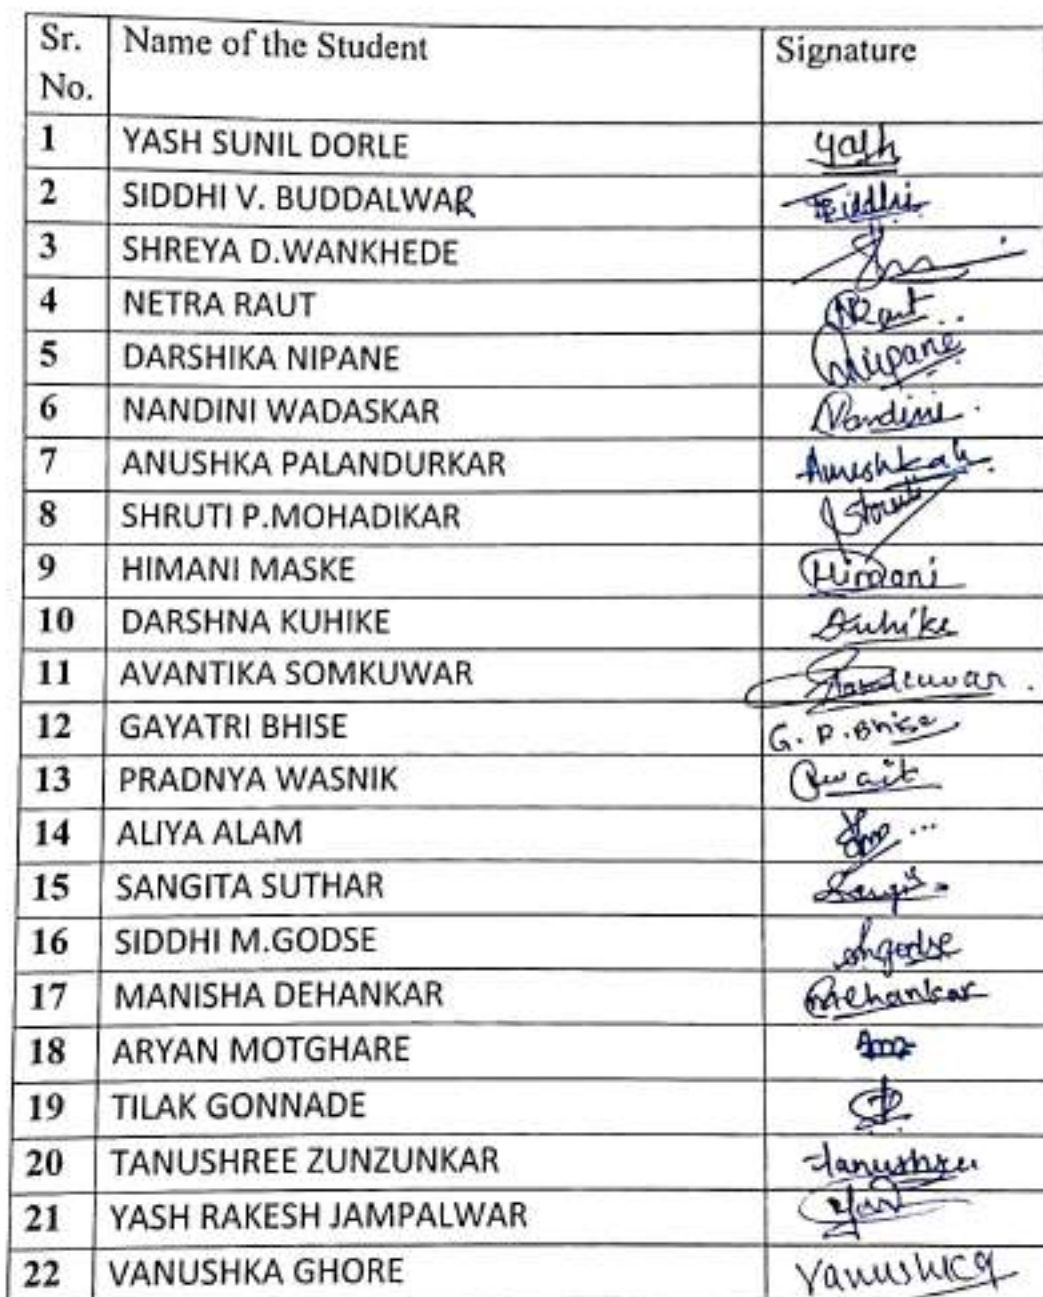 Sr. No. Name of the Student Signature
1 YASH SUNIL DORLE Yash
2 SIDDHI V. BUDDALWAR Siddhi
3 SHREYA D.WANKHEDE
4 NETRA RAUT NRaut
5 DARSHIKA NIPANE Nipane
6 NANDINI WADASKAR Nandini
7 ANUSHKA PALANDURKAR Anushka
8 SHRUTI P.MOHADIKAR Shruti
9 HIMANI MASKE Himani
10 DARSHNA KUHIKE Kuhike
11 AVANTIKA SOMKUWAR
12 GAYATRI BHISE G. P. Bhise
13 PRADNYA WASNIK
14 ALIYA ALAM
15 SANGITA SUTHAR
16 SIDDHI M.GODSE
17 MANISHA DEHANKAR
18 ARYAN MOTGHARE
19 TILAK GONNADE
20 TANUSHREE ZUNZUNKAR Tanushree
21 YASH RAKESH JAMPALWAR
22 VANUSHKA GHORE Vanushka